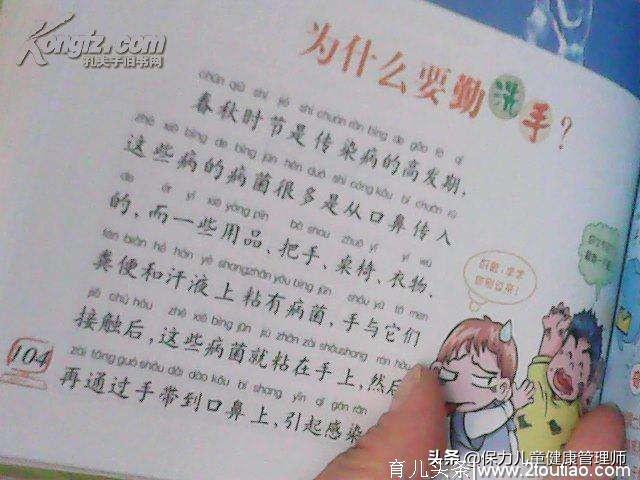 Kongfz.com
孔夫子旧书网
为什么要勤洗手？
chūn qiū shí jié shì chuán rǎn bìng de gāo fā qī
春秋时节是传染病的高发期，
zhè xiē bìng de bìng jūn hěn duō shì cóng kǒu bí chuán rù
这些病的病菌很多是从口鼻传入
de ér yì xiē yòng pǐn bǎ shǒu zhuō yǐ yī wù
的，而一些用品、把手、桌椅、衣物、
fèn biàn hé hàn yè shang zhān yǒu bìng jūn shǒu yǔ tā men
粪便和汗液上粘有病菌，手与它们
jiē chù hòu zhè xiē bìng jūn jiù zhān zài shǒu shang rán hòu
接触后，这些病菌就粘在手上，然后
zài tōng guò shǒu dài dào kǒu bí shang yǐn qǐ gǎn rǎn
再通过手带到口鼻上，引起感染
104
头条@保力儿童健康管理师
育儿头条 www.zioutiao.com